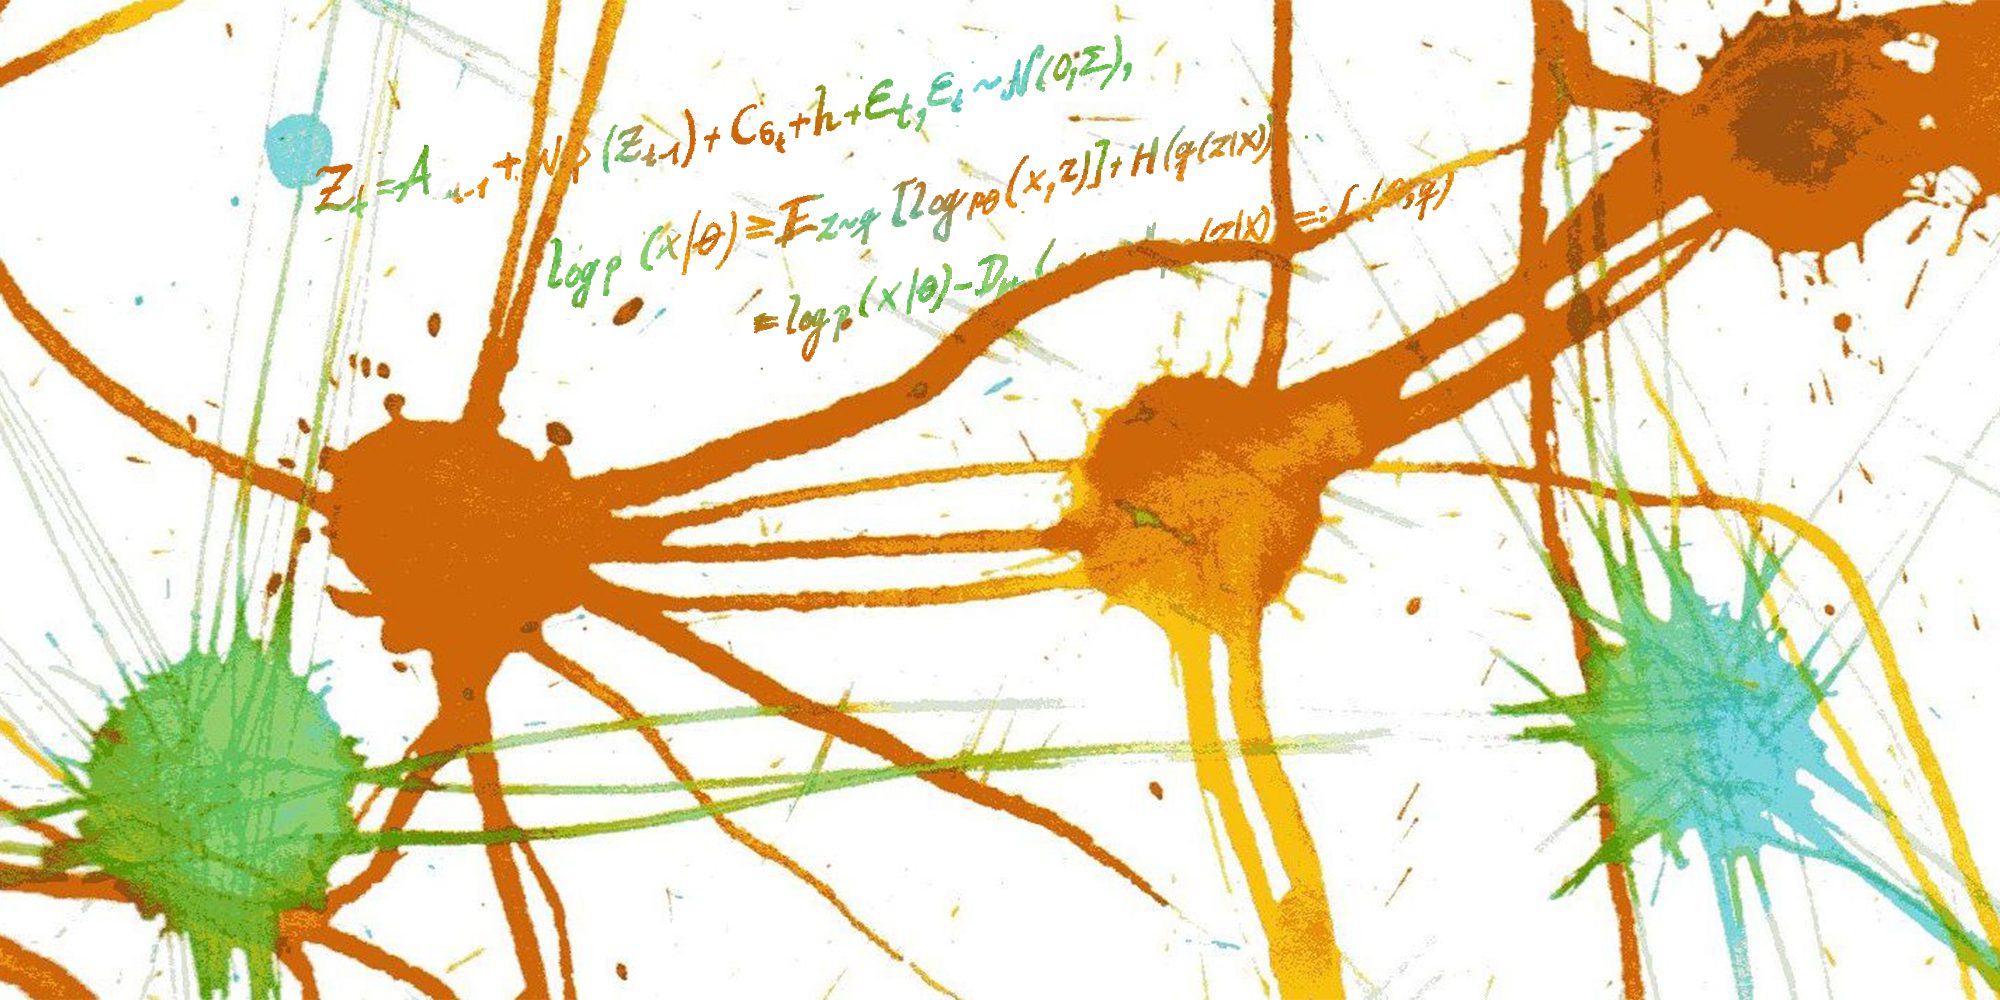 Z_t = A _{t-1} + W φ (Z_{t-1}) + C6_t + h + ε_t, ε_t ~ N(0;Σ),
log p (x|θ) ≥ E_{z~q} [log p_θ (x,z)] + H(q(z|x))
= log p (x|θ) - D (z|x) =: L(θ,q)